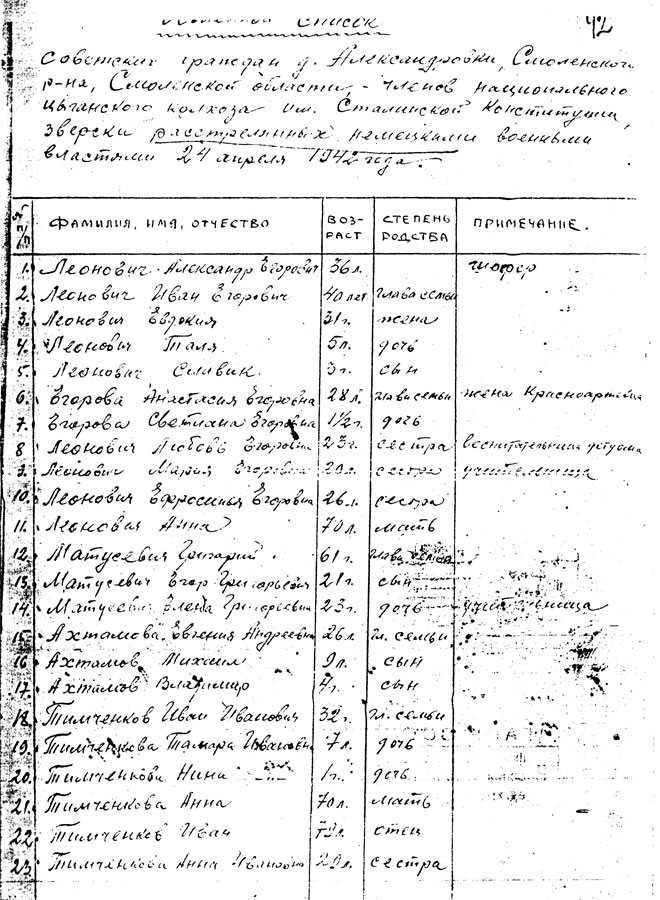 список
42
советских граждан д. Александровки, Смоленского
р-на, Смоленской области, - членов национального
цыганского колхоза им. Сталинской Конституции,
зверски расстрелянных немецкими военными
властями 24 апреля 1942 года.
№ п/п ФАМИЛИЯ, ИМЯ, ОТЧЕСТВО ВОЗ-РАСТ СТЕПЕНЬ РОДСТВА ПРИМЕЧАНИЕ.
1. Леонович Александр Егорович 36 л. шофер
2. Леонович Иван Егорович 40 лет глава семьи
3. Леонович Евдокия 31 г. жена
4. Леонович Таля 5 л. дочь
5. Леонович Славик 3 г. сын
6. Егорова Анастасия Егоровна 28 л. глава семьи жена Красноармейца
7. Егорова Светлана Егоровна 1 1/2 г. дочь
8 Леонович Любовь Егоровна 23 г. сестра воспитательница детдома
9. Леонович Мария Егоровна 29 л. сестра учительница
10. Леонович Ефросинья Егоровна 26 л. сестра
11. Леонович Анна 70 л. мать
12. Матусевич Григорий 61 г. глава семьи
13. Матусевич Егор Григорьевич 21 г. сын
14. Матусевич Елена Григорьевна 23 г. дочь учительница
15. Ахтамова Евгения Андреевна 26 л. гл. семьи
16 Ахтамов Михаил 9 л. сын
17. Ахтамов Владимир 4 г. сын
18. Тимченков Иван Иванович 32 г. гл. семьи
19. Тимченкова Тамара Ивановна 7 л. дочь
20. Тимченкова Нина 1 г. дочь
21. Тимченкова Анна 70 л. мать
22. Тимченков Иван отец
23. Тимченкова Анна Ивановна 29 л. сестра